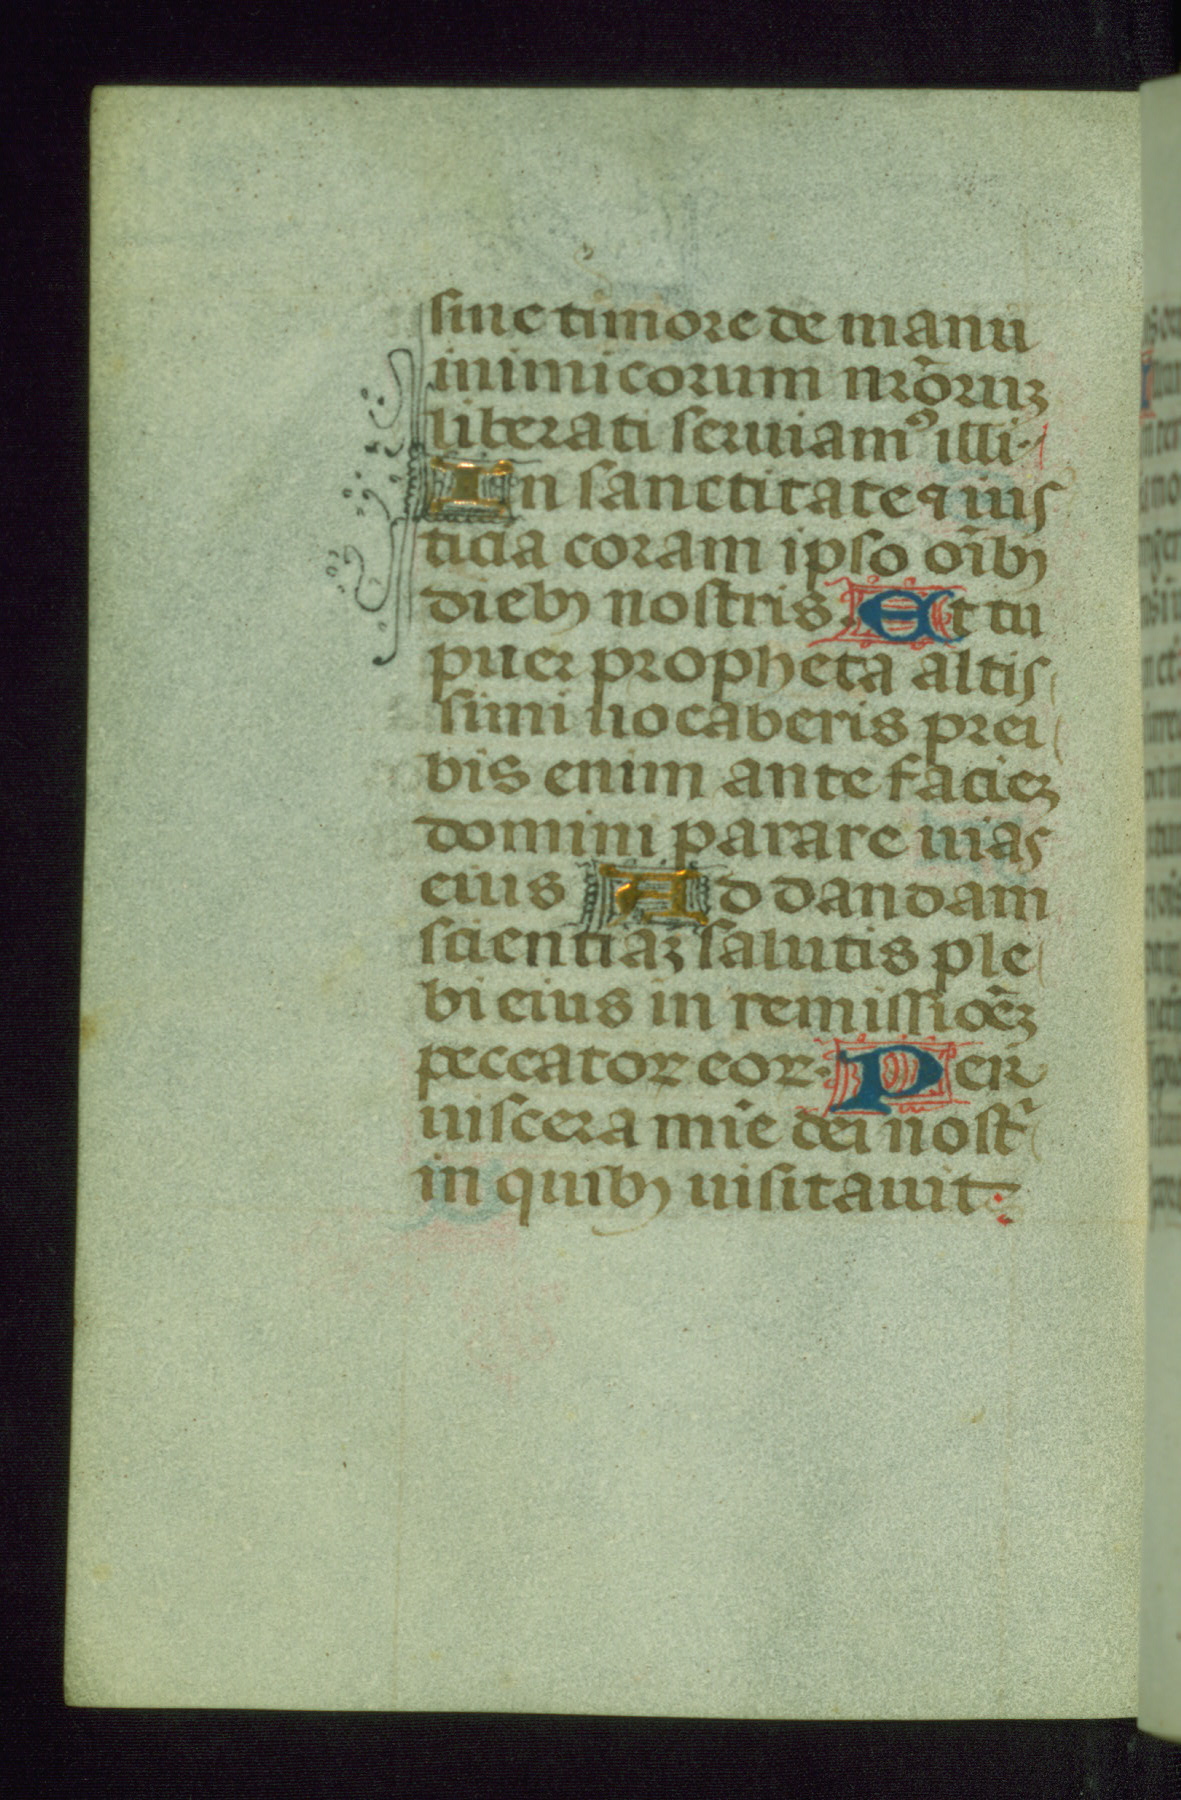 sine timore de manu
inimicorum nr̄oruꝫ
liberati seruiamꝰ illi·
In sanctitate ⁊ ius
ticia coram ipso oībꝫ
diebꝫ nostris. Et tu
puer propheta altis
simi uocaberis prei
bis enim ante facieꝫ
domini parare uias
eius Ad dandam
scientiaꝫ salutis ple
bi eius in remissiōeꝫ
peccatoꝝ eoꝝ· Per
uiscera mīe dei nostꝛ̄
in quibꝫ uisitauit